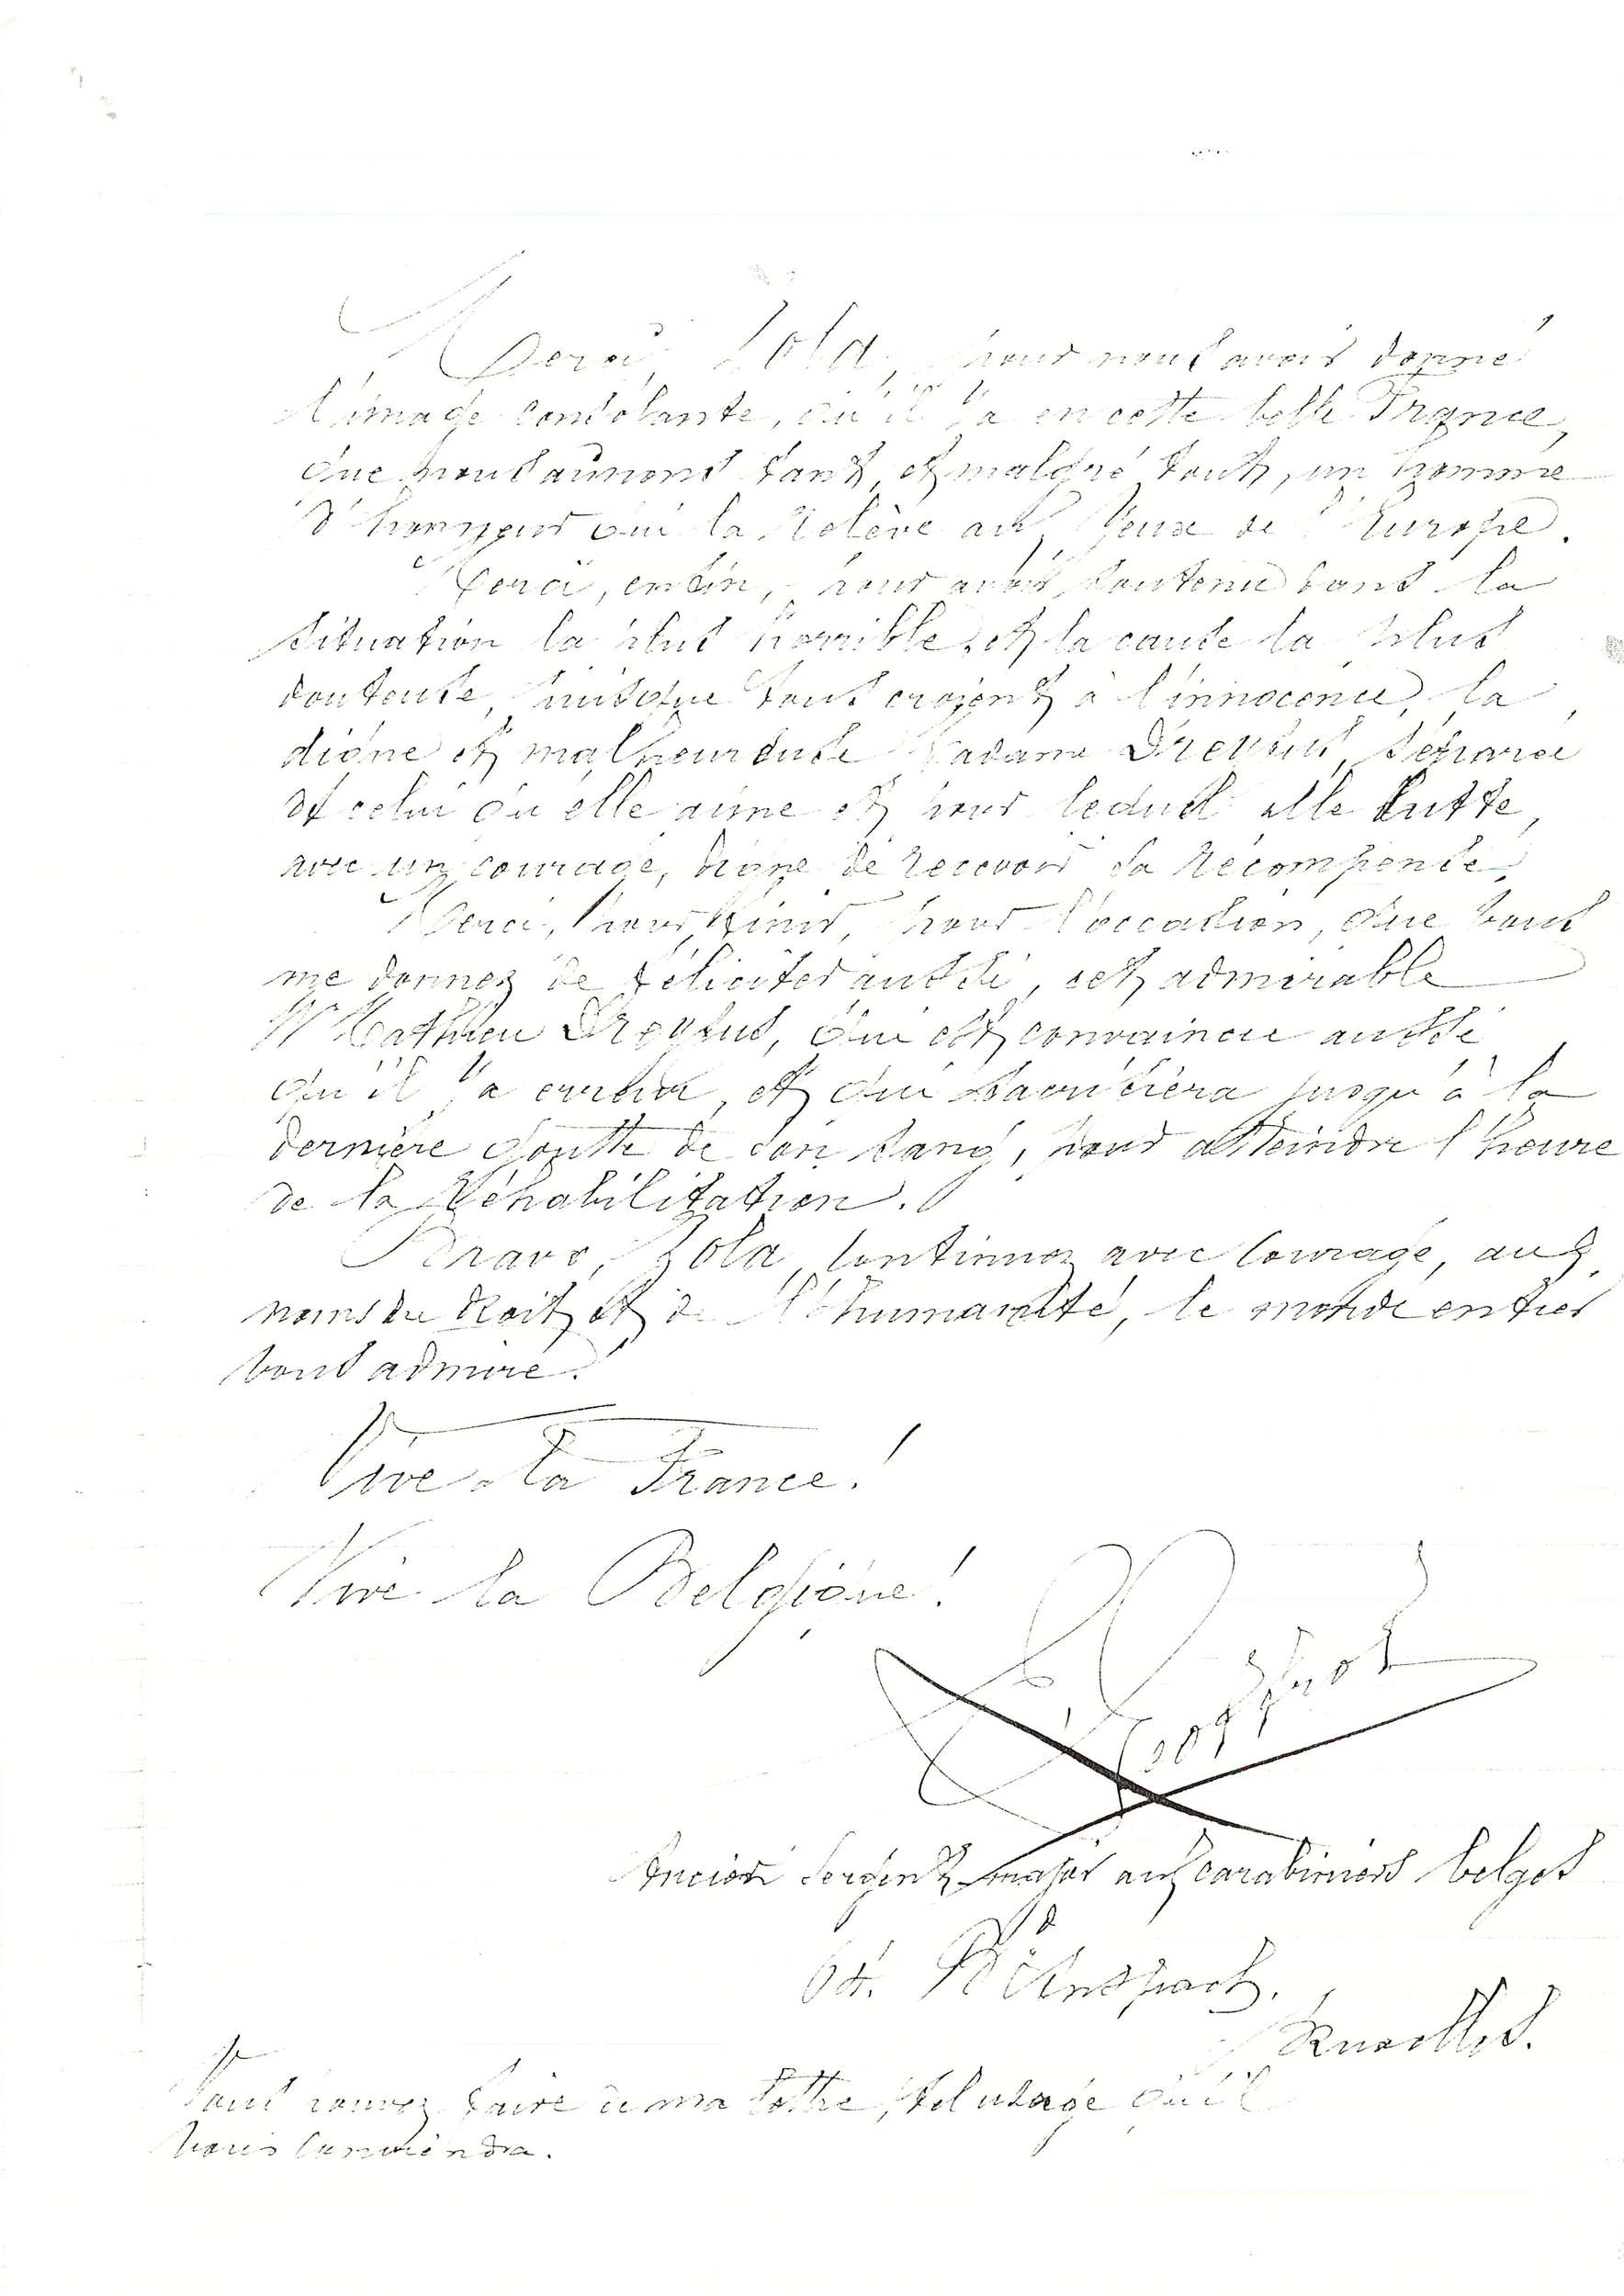 Merci, Zola, pour nous avoir donné
l'image consolante, qu'il y a en cette belle France,
que nous aimons tant, et malgré tout, un homme
d'honneur qui la relève aux yeux de l'Europe.
Merci, enfin, pour avoir soutenu dans la
situation la plus horrible, et la cause la plus
douteuse, puisque tous croient à l'innocence, la
digne et malheureuse Madame Dreyfus, séparée
de celui qu'elle aime et pour lequel elle lutte,
avec un courage, digne de recevoir sa récompense.
Merci, pour l'occasion, que vous
me donnez de féliciter aussi, cet admirable
Mr Mathieu Dreyfus, qui est convaincu aussi
qu'il y a erreur, et qui sacrifiera jusqu'à la
dernière goutte de son sang, pour atteindre l'heure
de la Réhabilitation.
Bravo, Zola, continuez avec courage, aux
noms du Droit et de l'humanité, le monde entier
vous admire.
Vive la France!
Vive la Belgique!
Ancien sergent major aux carabiniers belges
Bd Anspach.
Bruxelles.
Vous pouvez faire de ma lettre, tel usage qu'il
vous conviendra.